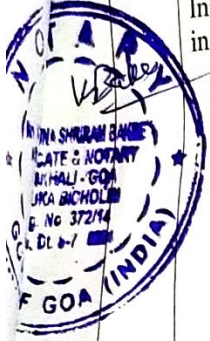 In
in
NOTARY
SHRIRAM
CATE & NOTARY
KHALI - GOA
UKA BICHOLIM
No 372/14
Dt
F GOA (INDIA)